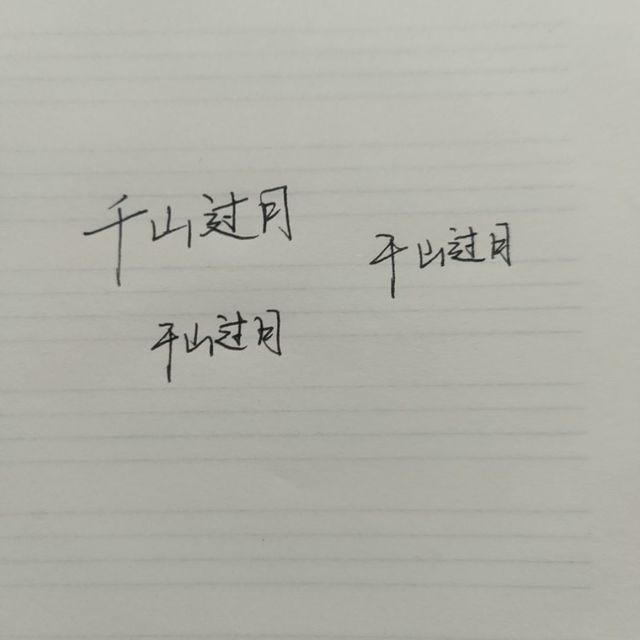 千山过月
千山过月
千山过月